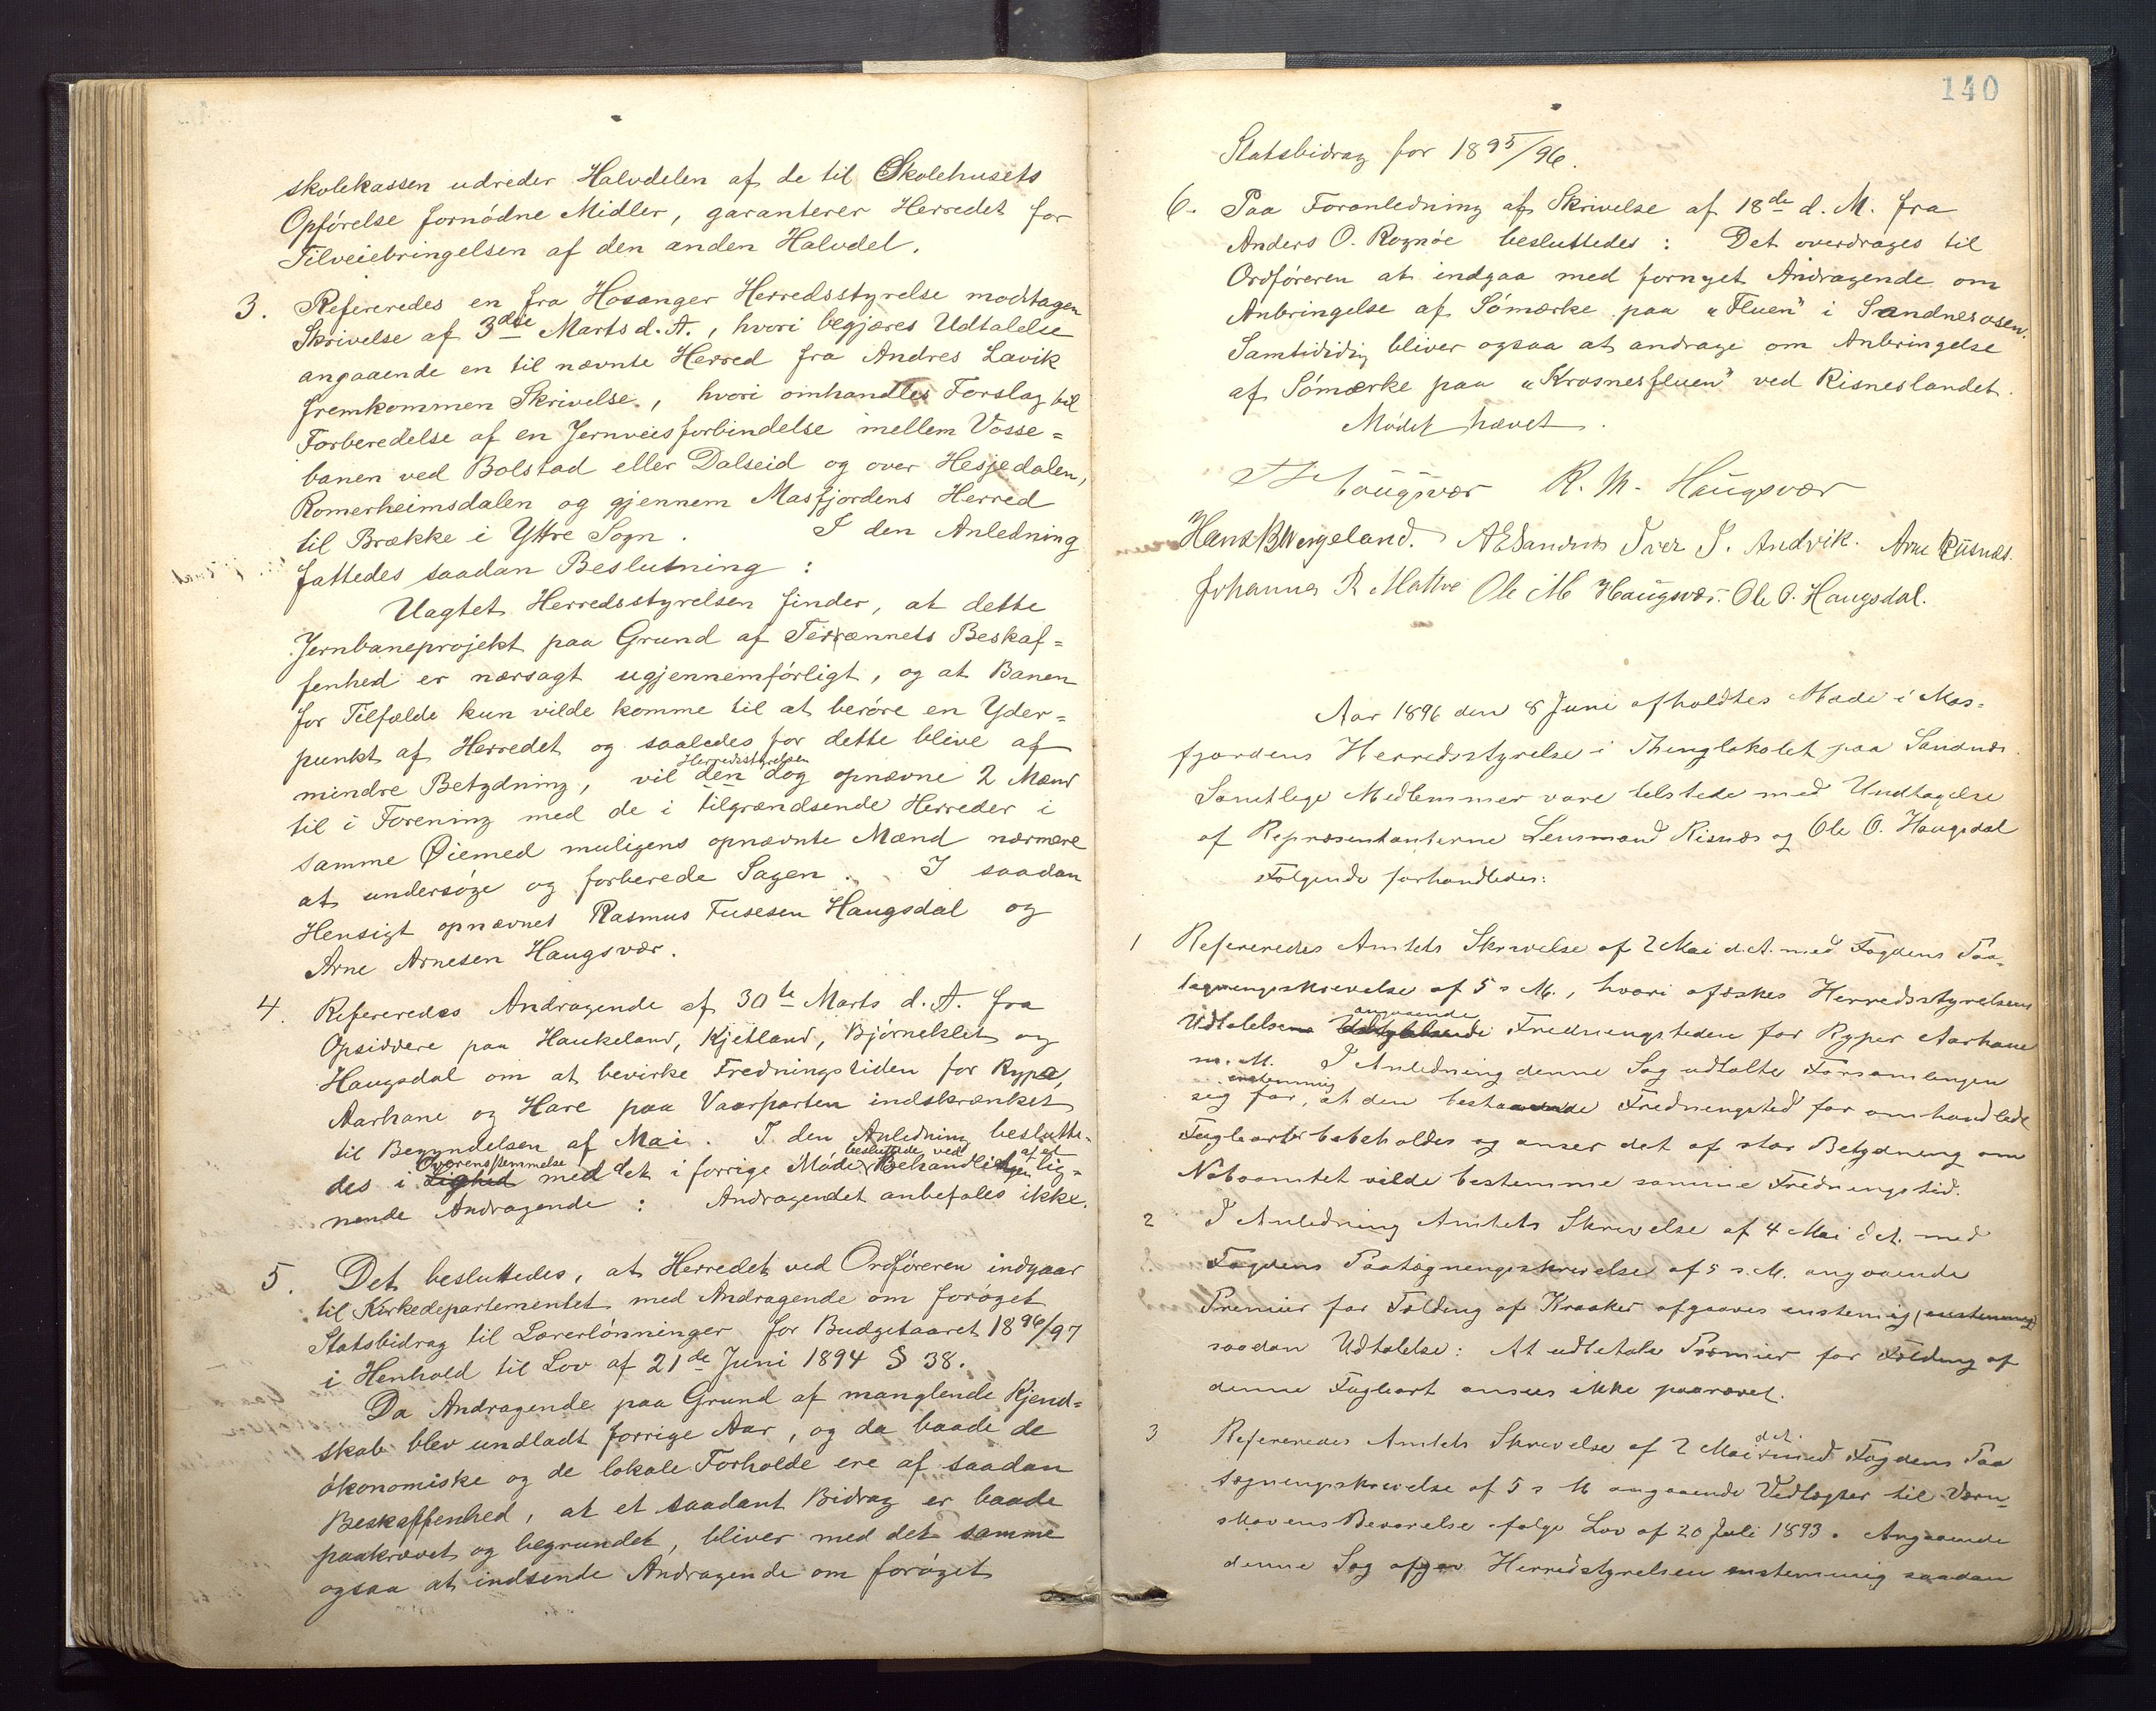 skolekassen udreder Halvdelen af de til Skolehusets
Opførelse fornødne Midler, garanterer Herredet for
Tilveiebringelsen af den anden Halvdel.
3. Refereredes en fra Hosanger Herredsstyrelse modtagen
Skrivelse af 3die Marts d. A., hvori begjæres Udtalelse
angaaende en til nævnte Herred fra Andres Lavik
fremkommen Skrivelse, hvori omhandles Forslag til
Forberedelse af en Jernveisforbindelse mellem Vosse=
banen ved Bolstad eller Dalseid og over Hesjedalen,
Romerheimsdalen og gjennem Masfjordens Herred
til Brække i Yttre Sogn. I den Anledning
fattedes saadan Beslutning:
Uagtet Herredsstyrelsen finder, at dette
Jernbaneprojekt paa Grund af Terrænnets Beskaf=
fenhed er nærsagt ugjennemførligt, og at Banen
for Tilfælde kun vilde komme til at berøre en Yder=
punkt af Herredet og saaledes for dette blive af
Herredsstyrelsen
mindre Betydning, vil den dog opnævne 2 Mænd
til i Forening med de i tilgrændsende Herreder i
samme Øiemed muligens opnævnte Mænd nærmere
at undersøge og forberede Sagen. I saadan
Hensigt opnævnes Rasmus Fusesen Haugsdal og
Arne Arnesen Haugsvær.
4. Refereredes Andragende af 30te Marts d. A. fra
Opsiddere paa Haukeland, Kjetland, Bjørneklet og
Haugsdal om at bevirke Fredningstiden for Rype,
Aarhane og Hare paa Vaarparten indskrænket
til Begyndelsen af Mai. I den Anledning beslutte-
Overensstemmelse besluttede ved af et
des i Lighed med det i forrige Møde Behandlingen lig=
nende Andragende: Andragendet anbefales ikke.
5. Det besluttedes, at Herredet ved Ordføreren indgaar
til Kirkedepartementet med Andragende om forøget
Statsbidrag til Lærerlønninger for Budgetaaret 1896/97
i Henhold til Lov af 21de Juni 1894 § 38.
Da Andragende paa Grund af manglende Kjend=
skab blev undladt forrige Aar, og da baade de
økonomiske og de lokale Forholde ere af saadan
Beskaffenhed, at et saadant Bidrag er baade
paakrævet og begrundet, bliver med det samme
ogsaa at indsende Andragende om forøget
140
Statsbidrag for 1895/96.
6. Paa Foranledning af Skrivelse af 18de d. M. fra
Anders O. Rognøe besluttedes: Det overdrages til
Ordføreren at indgaa med fornyet Andragende om
Anbringelse af Sømærke paa "Fluen" i Sandnesosen.
Samtididig bliver ogsaa at andrage om Anbringelse
af Sømærke paa "Krosnesfluen" ved Risneslandet.
Mødet hævet.
Haugsvær R. M. Haugsvær
Hans B Wergeland. A E Sandnes Iver I. Andvik. Arne Riisnes.
Johannes R Matre Ole M Haugsvær. Ole O. Haugsdal.
Aar 1896 den 8 Juni afholdtes Møde i Mas-
fjordens Herredsstyrelse i Thinglokalet paa Sandnæs.
Samtlige Medlemmer vare tilstede med Undtagelse
af Repræsentanterne Lensmand Risnæs og Ole O. Haugsdal
Følgende forhandledes:
1 Refereredes Amtets Skrivelse af 2 Mai d.A. med Fogdens Paa-
tegningsskrivelse af 5 s M., hvori afæskes Herredsstyrelsens
angaaende
Udtalelse Fredningstiden for Ryper Aarhane
m. M. I Anledning denne Sag udtalte Forsamlingen
enstemmig
sig for, at den bestaaende Fredningstid for omhandlede
Fuglearter bibeholdes og anser det af stor Betydning om
Naboamtet vilde bestemme samme Fredningstid.
2 I Anledning Amtets Skrivelse af 4 Mai d.A. med
Fogdens Paategningsskrivelse af 5 s. M. angaaende
Premier for Fælding af Kraaker afgaves enstemig (enstemmig)
saadan Udtalelse: At udbetale Præmier for Fælding af
denne Fugleart ansees ikke paakrævet.
3 Refereredes Amtets Skrivelse af 2 Mai d.A. med Fogdens Paa
tegningsskrivelse af 5 s M angaaende Vedtægter til Værn-
skovens Bevarelse ifølge Lov af 20 Juli 1893. Angaaende
denne Sag afgav Herredstyrelsen enstemmig saadan